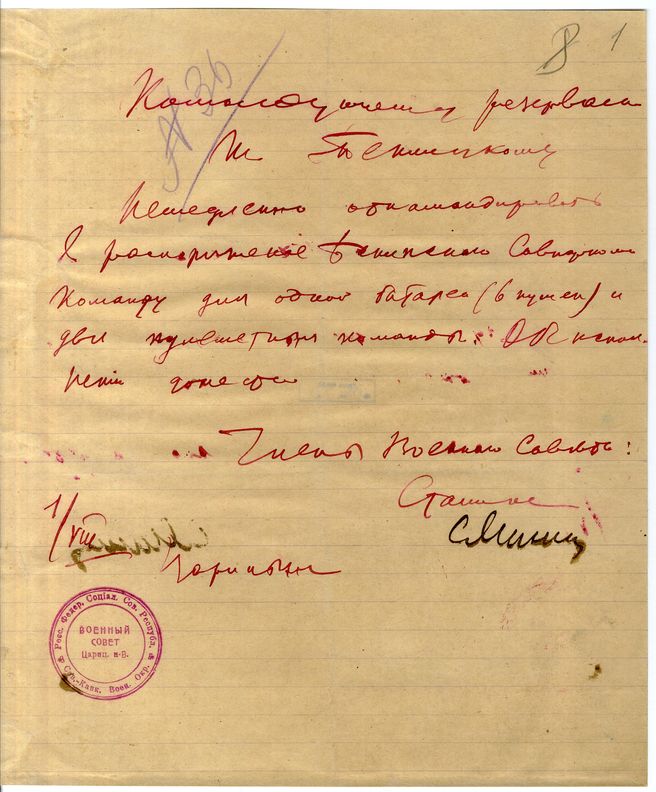 8 1
№ 36
Командующему резервами
т.
Немедленно откомандировать
в распоряжение Военного Совета
команду для одной батареи (6 пушек) и
две пулеметных команды. Об испол-
нении донести
Члены Военного Совета:
Сталин
С Минин
1/VIII
Царицын
Росс. Федер. Соціал. Сов. Республ.
ВОЕННЫЙ
СОВЕТ
Цариц. н-В.
Сѣв.-Кавк. Воен. Окр.